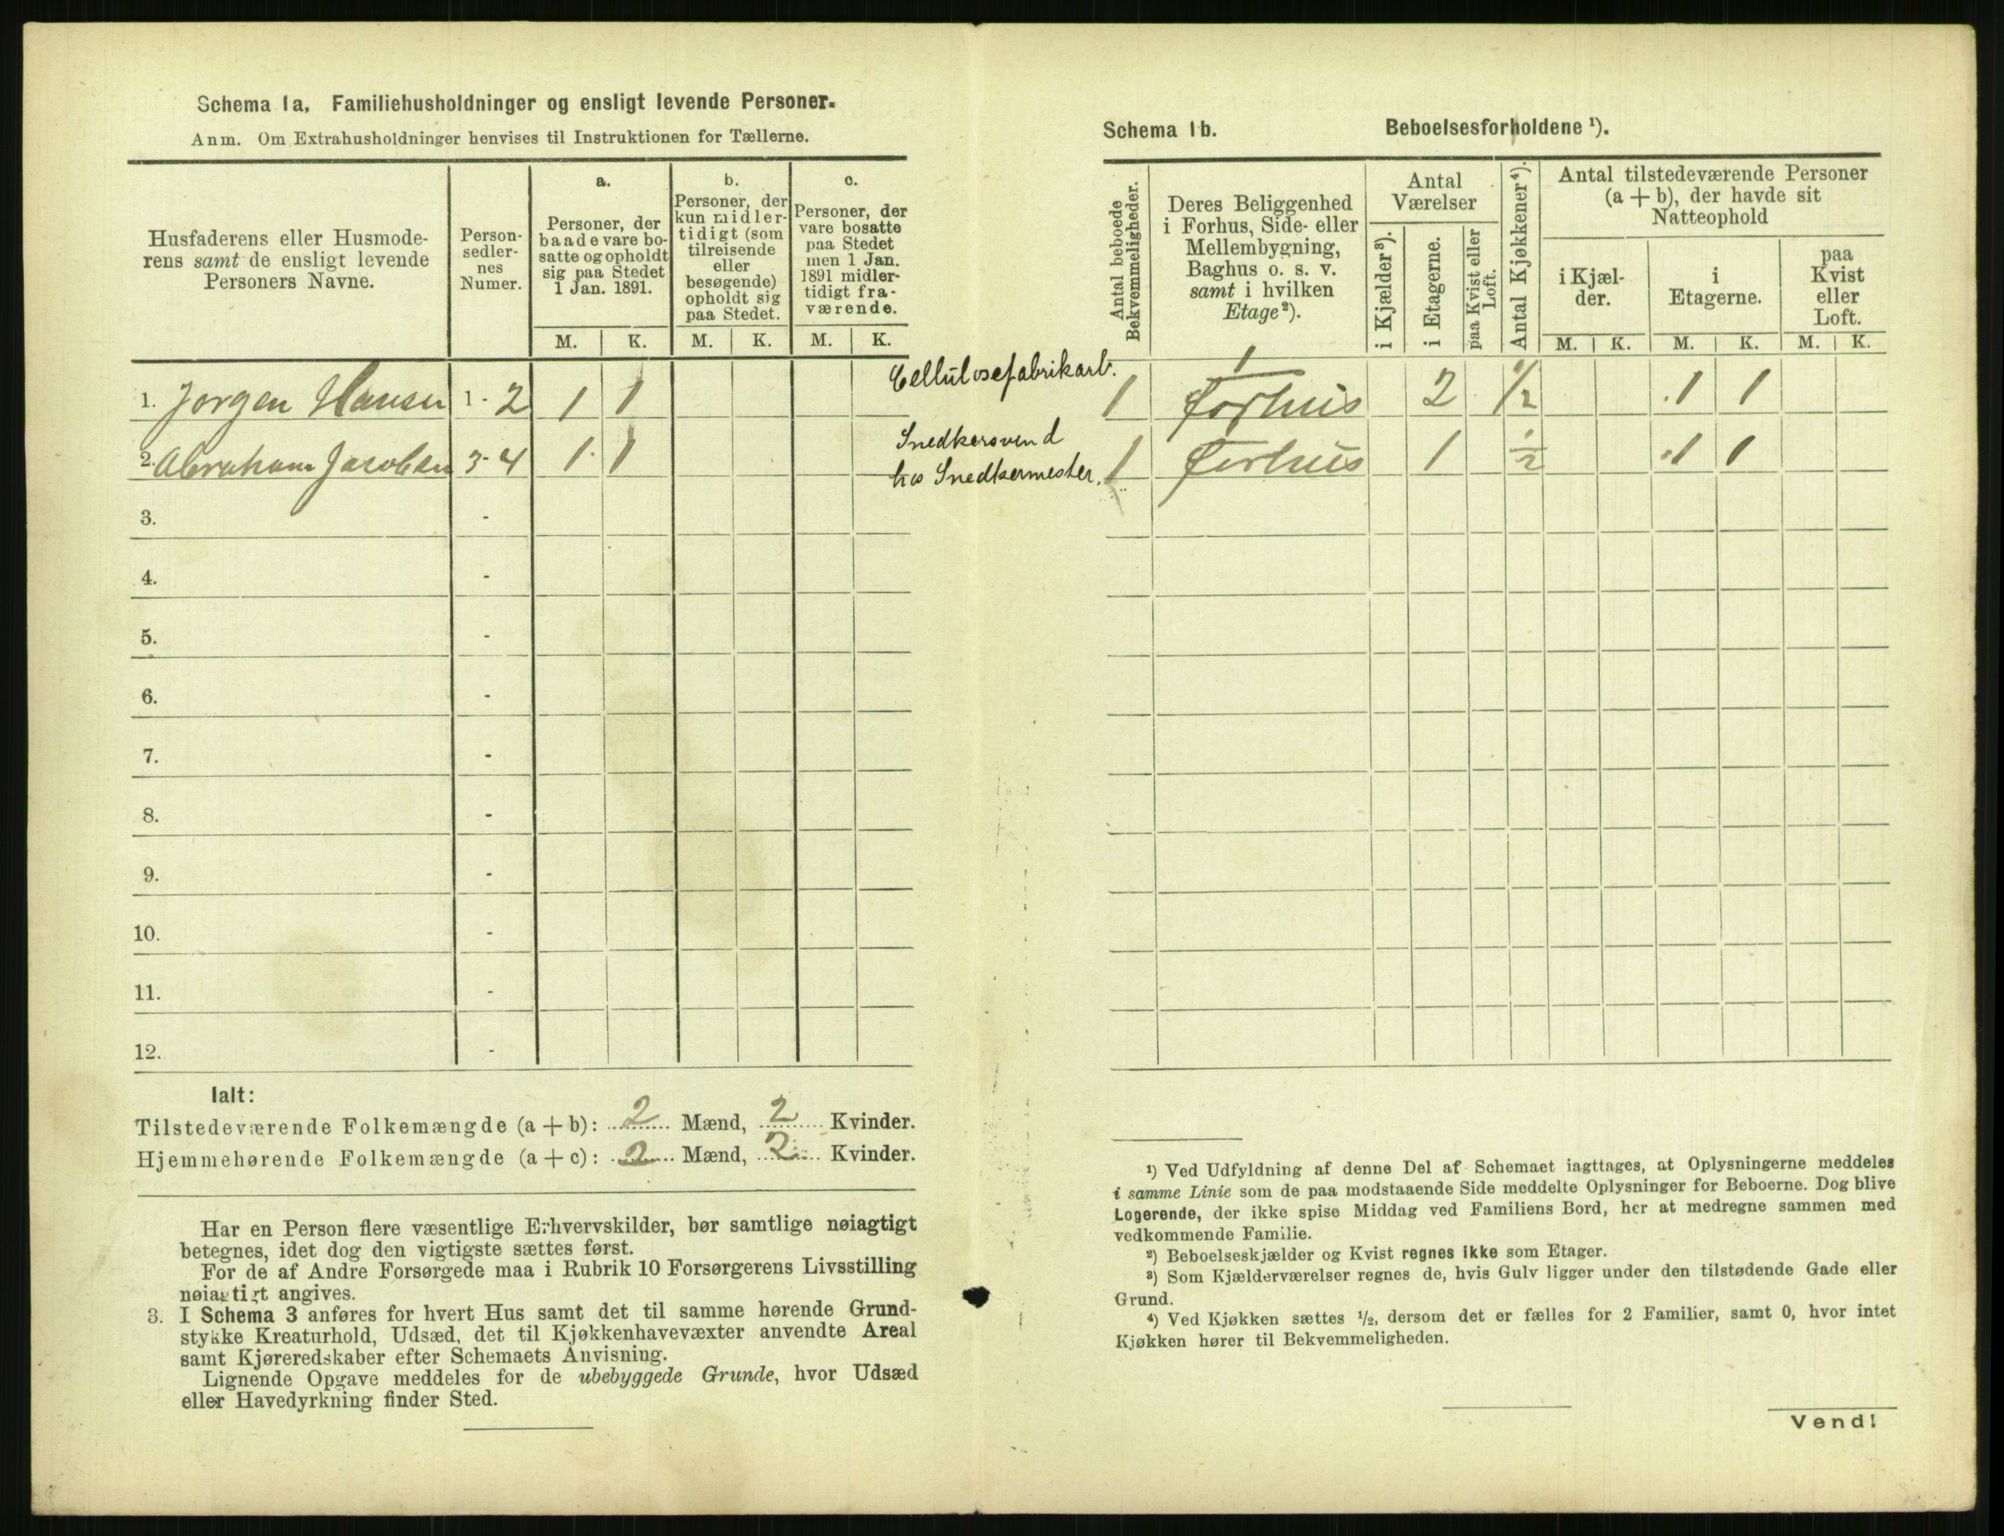 Schema 1a. Familiehusholdninger og ensligt levende Personer.
Anm. Om Extrahusholdninger henvises til Instruktionen for Tællerne.
Husfaderens eller Husmode-
rens samt de ensligt levende
Personers Navne.
Person-
sedler-
nes
Numer.
a.
Personer, der
baade vare bo-
satte og opholdt
sig paa Stedet
1 Jan. 1891.
b.
Personer, der
kun midler-
tidigt (som
tilreisende
eller
besøgende)
opholdt sig
paa Stedet.
c.
Personer, der
vare bosatte
paa Stedet
men 1 Jan.
1891 midler-
tidigt fra-
værende.
M. K. M. K. M. K.
1. Jørgen Hansen 1 - 2 1 1
2. Abraham Jacobsen 3 - 4 1 1
3. -
4. -
5. -
6. -
7. -
8. -
9. -
10. -
11. -
12. -
Ialt:
Tilstedeværende Folkemængde (a + b): 2 Mænd, 2 Kvinder.
Hjemmehørende Folkemængde (a + c): 2 Mænd, 2 Kvinder.
Har en Person flere væsentlige Erhvervskilder, bør samtlige nøiagtigt
betegnes, idet dog den vigtigste sættes først.
For de af Andre Forsørgede maa i Rubrik 10 Forsørgerens Livsstilling
nøiagtigt angives.
3. I Schema 3 anføres for hvert Hus samt det til samme hørende Grund-
stykke Kreaturhold, Udsæd, det til Kjøkkenhavevæxter anvendte Areal
samt Kjøreredskaber efter Schemaets Anvisning.
Lignende Opgave meddeles for de ubebyggede Grunde, hvor Udsæd
eller Havedyrkning finder Sted.
Schema 1b. Beboelsesforholdene ¹).
Antal beboede
Bekvemmeligheder.
Deres Beliggenhed
i Forhus, Side- eller
Mellembygning,
Baghus o. s. v.
samt i hvilken
Etage²).
Antal
Værelser
i Kjælder³).
i Etagerne.
paa Kvist eller
Loft.
Antal Kjøkkener⁴).
Antal tilstedeværende Personer
(a + b), der havde sit
Natteophold
i Kjæl-
der.
i
Etagerne.
paa
Kvist
eller
Loft.
M. K. M. K. M. K.
Cellulosefabrikarb. 1
1 Forhus 2 1/2 1 1
Snedkersvend
hos Snedkermester. 1 Forhus 1 1/2 1 1
¹) Ved Udfyldning af denne Del af Schemaet iagttages, at Oplysningerne meddeles
i samme Linie som de paa modstaaende Side meddelte Oplysninger for Beboerne. Dog blive
Logerende, der ikke spise Middag ved Familiens Bord, her at medregne sammen med
vedkommende Familie.
²) Beboelseskjælder og Kvist regnes ikke som Etager.
³) Som Kjælderværelser regnes de, hvis Gulv ligger under den tilstødende Gade eller
Grund.
⁴) Ved Kjøkken sættes ½, dersom det er fælles for 2 Familier, samt 0, hvor intet
Kjøkken hører til Bekvemmeligheden.
Vend!